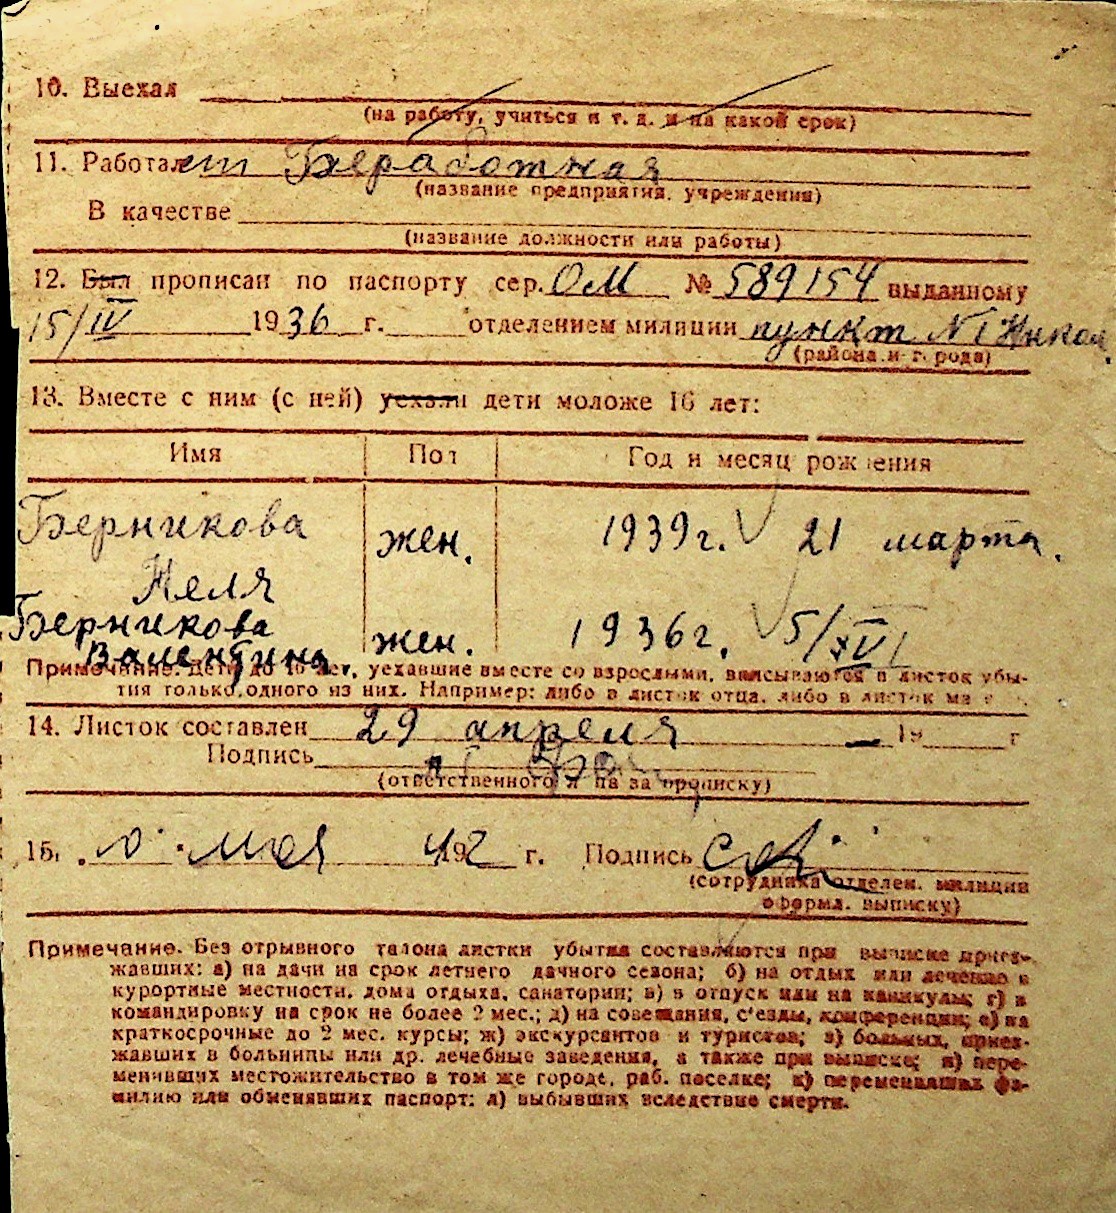 10. Выехал
(на работу, учиться и т. д. и на какой срок)
11. Работает Безработная
(название предприятия, учреждения)
В качестве
(название должности или работы)
12. Был прописан по паспорту сер. ОМ № 589154 выданному
15/IV 1936 г. отделением милиции пункт N 1 Никол
(района и города)
13. Вместе с ним (с ней) уехали дети моложе 16 лет:
Имя Пол Год и месяц рождения
Берникова жен. 1939 г. 21 марта.
Неля
Берникова жен. 1936 г. 5/
Валентина
Примечание. Дети до 16 лет, уехавшие вместе со взрослыми, вписываются в листок убы-
тия только одного из них. Например: либо в листок отца, либо в листок ма
14. Листок составлен 29 апреля 19 г
Подпись
(ответственного л на за прописку)
15. мая 1942 г. Подпись
(сотрудника отделен. милиции
оформл. выписку)
Примечание. Без отрывного талона листки убытия составляются при выписке приез-
жавших: а) на дачи на срок летнего дачного сезона; б) на отдых или лечение в
курортные местности, дома отдыха, санатории; в) в отпуск или на каникулы; г) в
командировку на срок не более 2 мес.; д) на совещания, с'езды, конференции; е) на
краткосрочные до 2 мес. курсы; ж) экскурсантов и туристов; з) больных, приез-
жавших в больницы или др. лечебные заведения, а также при выписке; и) пере-
менивших местожительство в том же городе, раб. поселке; к) переменивших фа-
милию или обменявших паспорт; л) выбывших вследствие смерти.